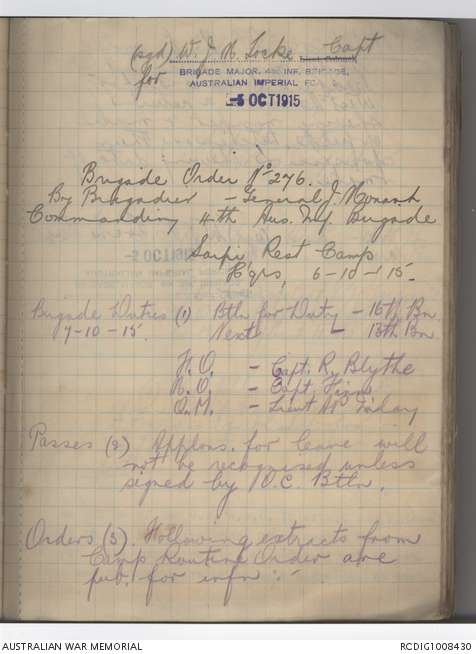 (sgd) W. J. M. Locke Capt
for
BRIGADE MAJOR, 4th INF. BRIGADE,
AUSTRALIAN IMPERIAL FORCE
-5 OCT 1915
Brigade Order No 276.
By Brigadier - General J Monash
Commanding 4th Aus. Inf Brigade
Sarpi Rest Camp
Hqrs, 6-10-15.
Brigade Duties (1) Btln for Duty - 16th Bn
7-10-15. Next - 13th Bn
- Capt. R. Blythe
M.O. - Capt.
Q.M. - Lieut
Passes (2) Applons. for leave will
not be recognised unless
signed by O.C. Btln.
Orders (3). Following extracts from
Camp Routine Order are
pub. for infn :-
AUSTRALIAN WAR MEMORIAL
RCDIG1008430